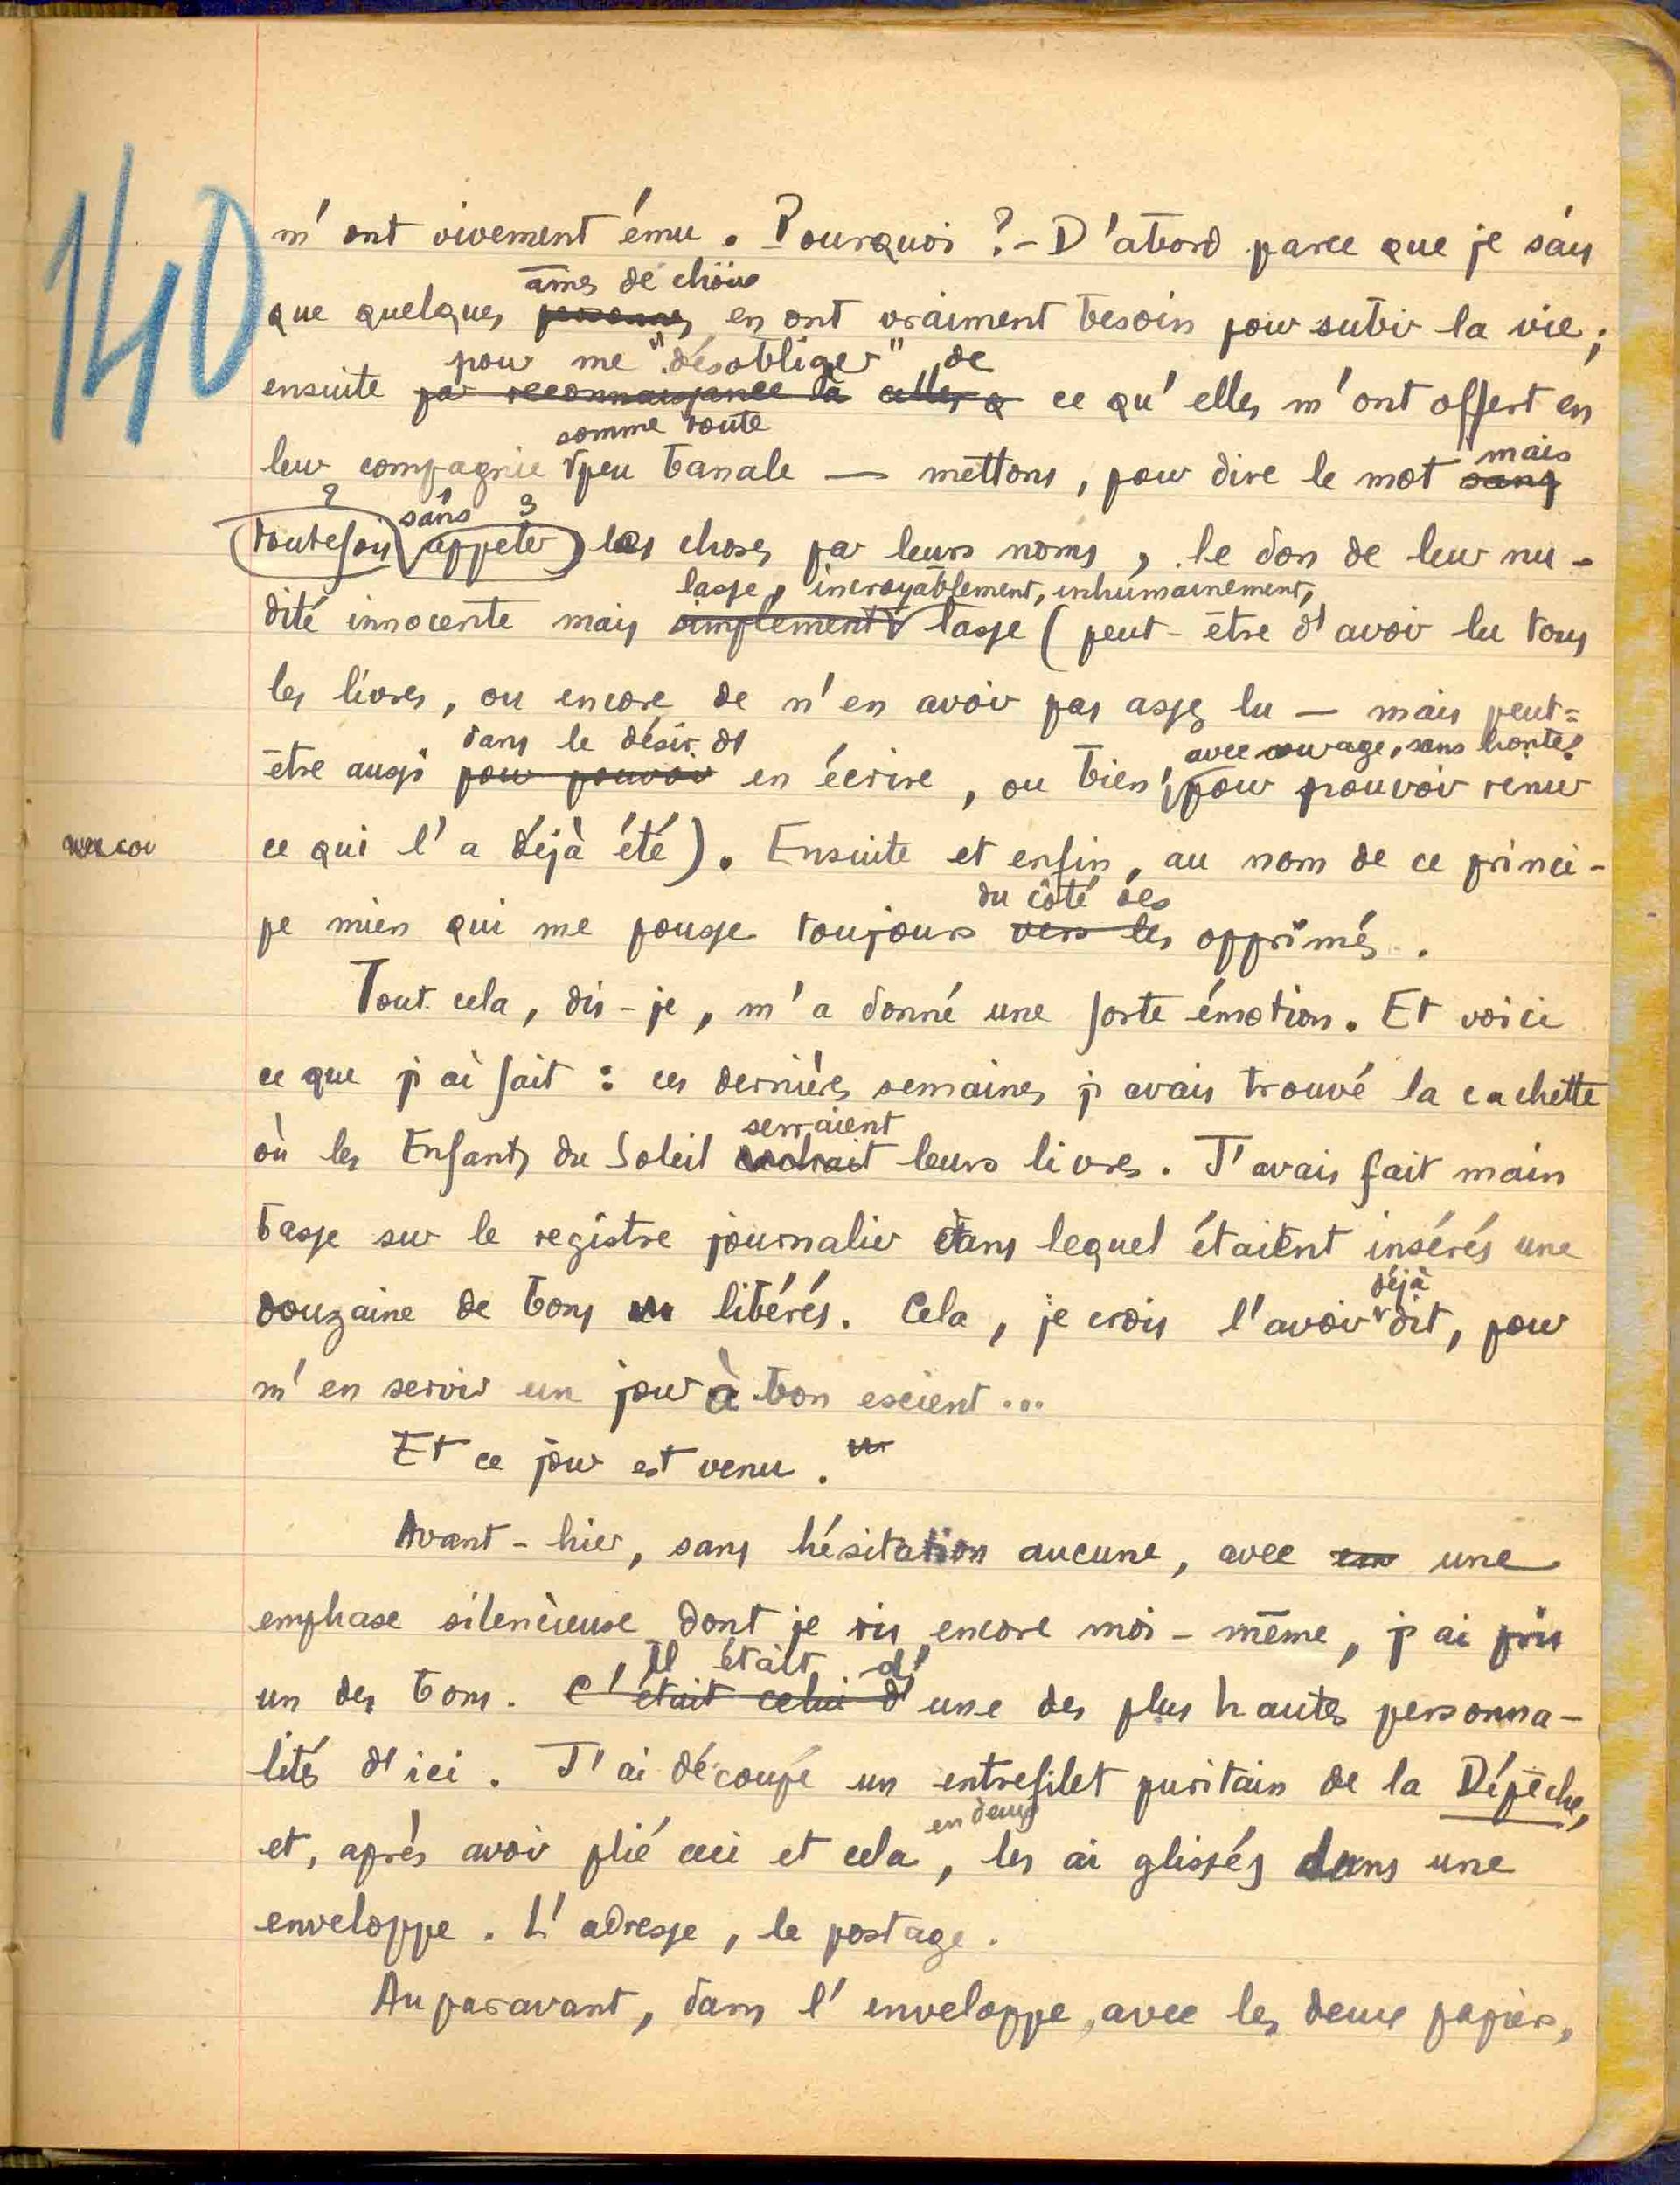 140
m'ont vivement ému. Pourquoi ? - D'abord parce que je sais
âmes déchues
que quelques personnes en ont vraiment besoin pour subir la vie ;
pour me "désobliger" de
ensuite par reconnaissance là celles à ce qu'elles m'ont offert en
somme toute
leur compagnie peu banale — mettons, pour dire le mot sans
mais
2 sans 3
toutefois appeler les choses par leurs noms, le don de leur nu-
lasse, incroyablement, inhumainement,
dité innocente mais simplement lasse (peut-être d'avoir lu tous
les livres, ou encore de n'en avoir pas assez lu — mais peut=
dans le désir d' avec courage, sans honte
être aussi pour pouvoir en écrire, ou bien, pour pouvoir
ce qui l'a déjà été). Ensuite et enfin, au nom de ce princi-
du côté des
pe mien qui me pousse toujours vers les opprimés.
Tout cela, dis-je, m'a donné une forte émotion. Et voici
ce que j'ai fait : ces dernières semaines j'avais trouvé la cachette
serraient
où les Enfants du Soleil cachait leurs livres. J'avais fait main
basse sur le registre journalier dans lequel étaient insérés une
déjà
douzaine de bons libérés. Cela, je crois l'avoir dit, pour
m'en servir un jour à bon escient...
Et ce jour est venu.
Avant-hier, sans hésitation aucune, avec une
emphase silencieuse dont je ris encore moi-même, j'ai pris
Il était d'
un des bons. C'était celui d'une des plus hautes personna-
lités d'ici. J'ai découpé un entrefilet puritain de la Dépêche,
en deux
et, après avoir plié ceci et cela, les ai glissés dans une
enveloppe. L'adresse, le postage.
Auparavant, dans l'enveloppe, avec les deux papiers,